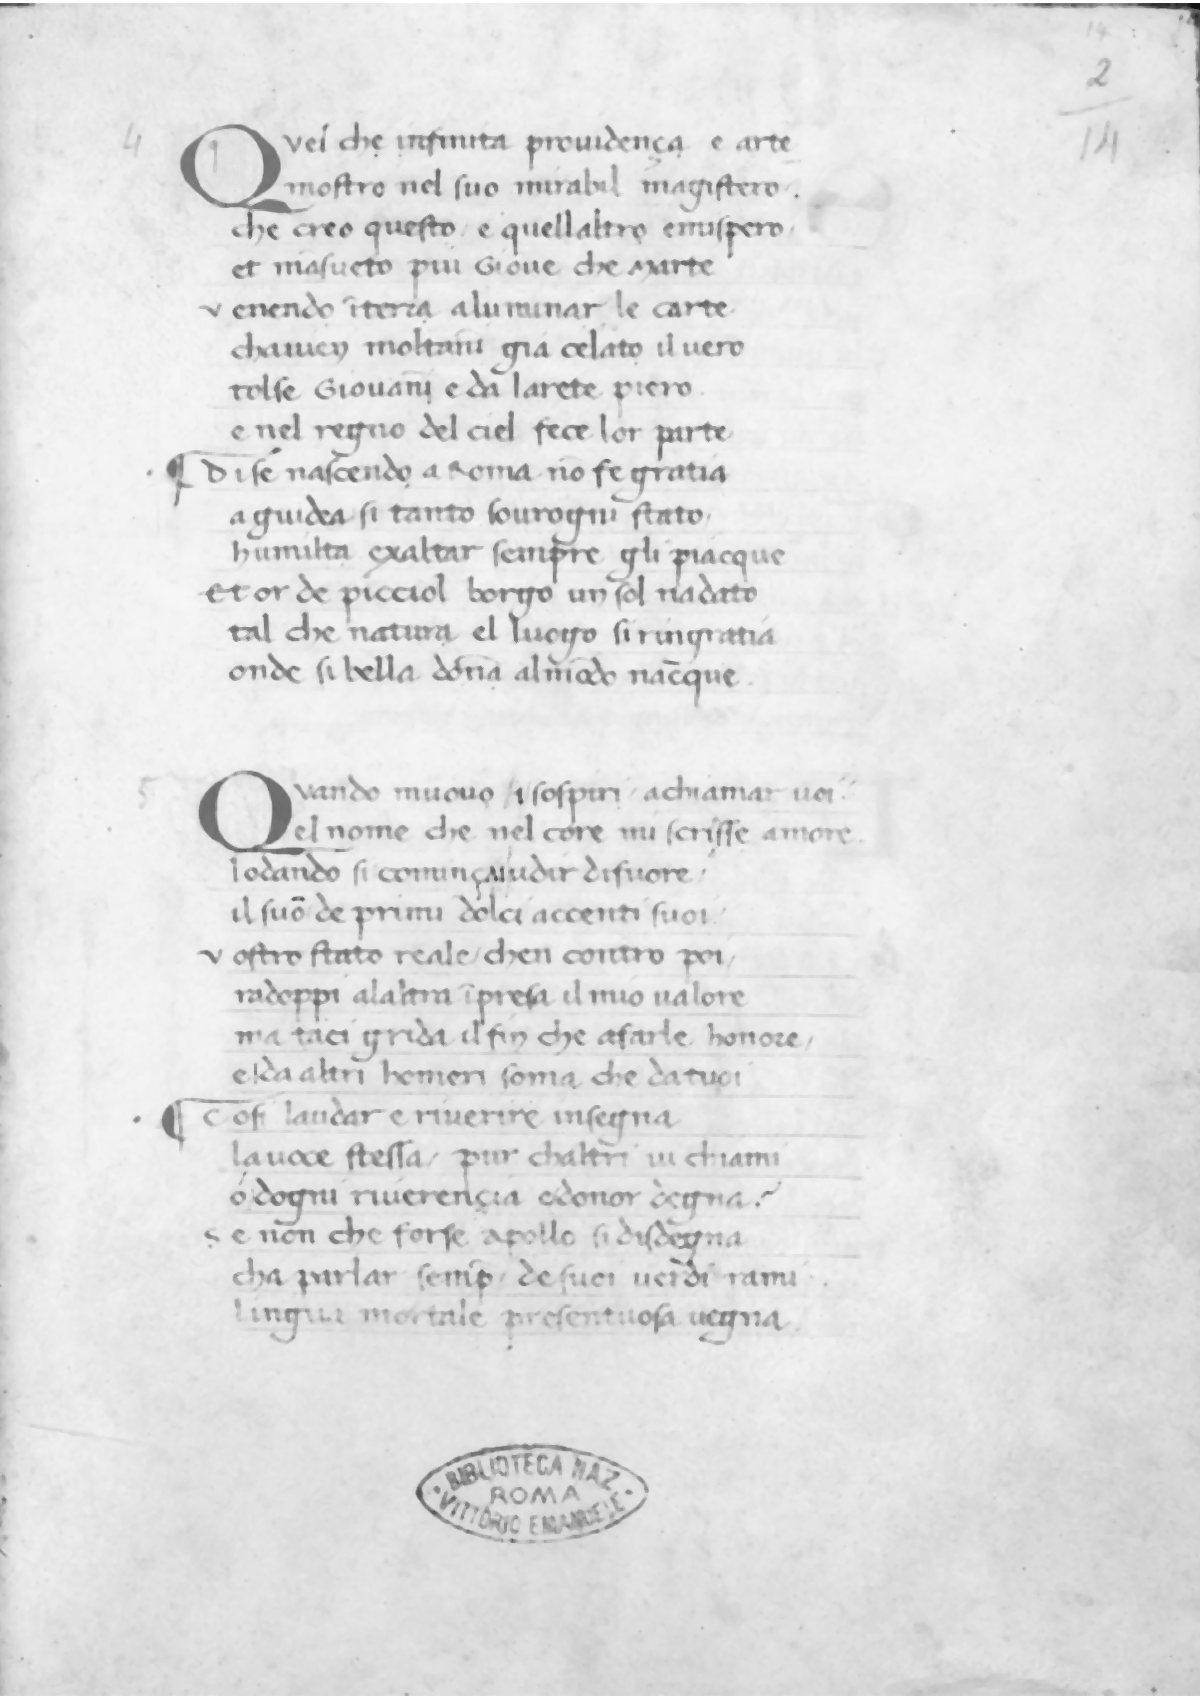 14
2
14
4
Quel che infinita prouidença e arte
mostro nel suo mirabil magistero.
che creo questo / e quellaltro emispero /
et māsueto piu Gioue che Marte
venendo ī terra a luminar le carte
chauien moltāni gia celato il uero
tolse Giouāni e da larete piero
e nel regno del ciel fece lor parte
¶ Di se nascendo a Roma nō fe gratia
a guidea si tanto sourogni stato /
humilta exaltar sempre gli piacque
Et or de picciol borgo un sol na dato
tal che natura el luogo si ringratia
onde si bella dōna al mōdo nacque
5
Quando muouo i sospiri / a chiamar uoi
el nome che nel core mi scrisse amore
lodando si cominça udir di fuore /
il suō de primi dolci accenti suoi
vostro stato reale / chen contro poi /
radoppi a lalta īpresa il mio ualore
ma taci grida il fin che a farle honore /
e da altri homeri soma che da tuoi
¶ Cosi laudar e riuerire insegna
la uoce stessa / pur chaltri ui chiami
o dogni riuerença e donor degna
se non che forse apollo si disdegna
cha parlar semp̄ / de suoi uerdi rami
lingua mortale presentuosa uegna
BIBLIOTECA NAZ.
ROMA
VITTORIO EMANUELE